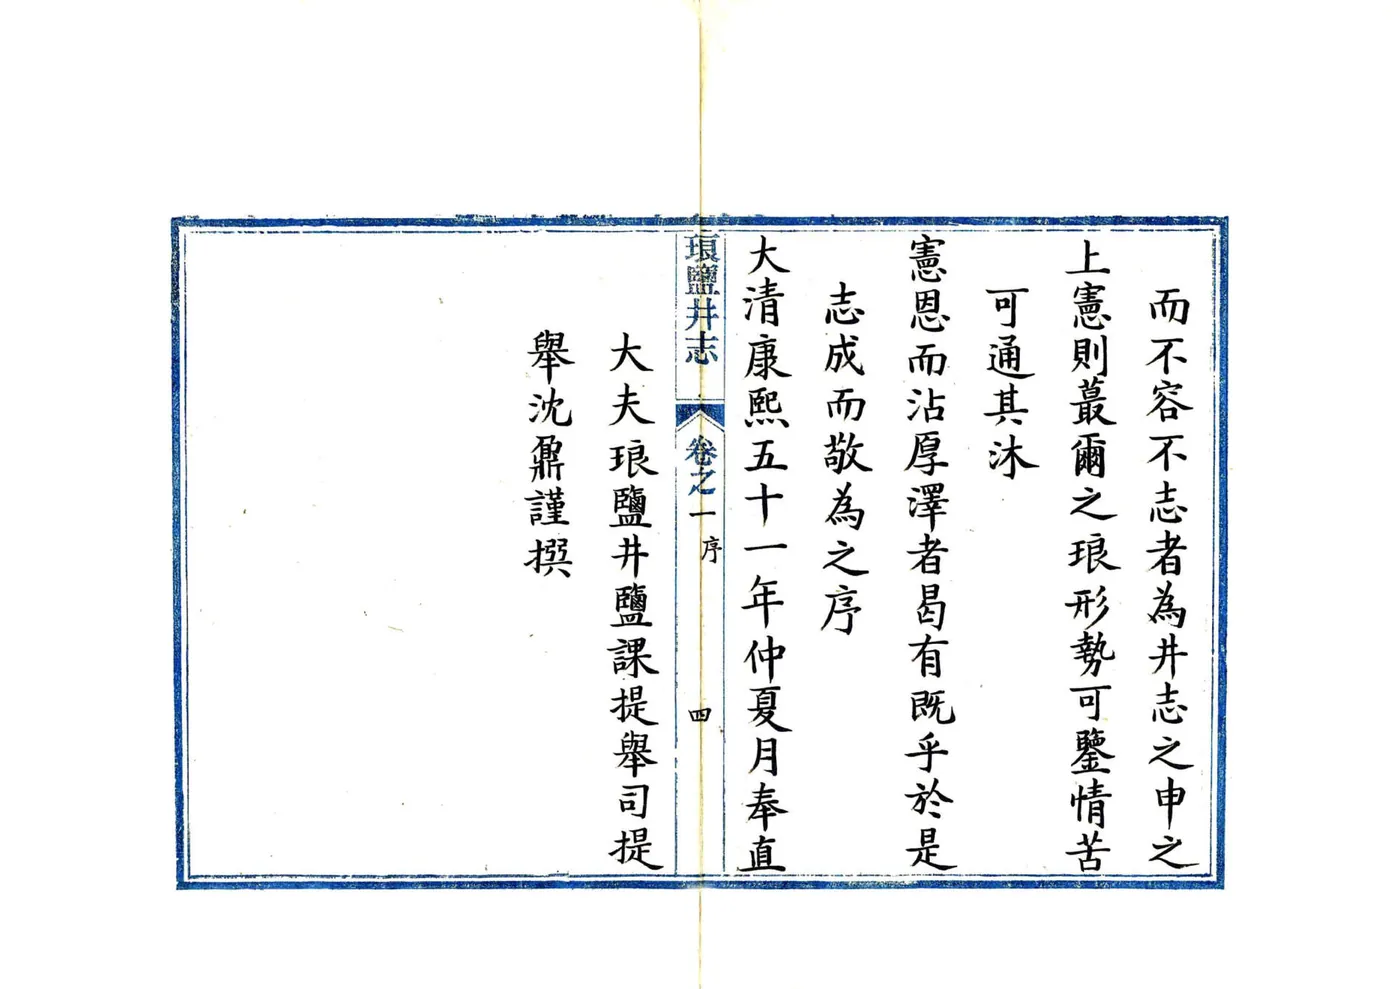 而不容不志者為井志之申之
上憲則蕞爾之琅形勢可鑒情苦
可通其沐
憲恩而沾厚澤者曷有既乎於是
志成而敬為之序
大清康熙五十一年仲夏月奉直
琅鹽井志
卷之一
序
四
大夫琅鹽井鹽課提舉司提
舉沈鼐謹撰